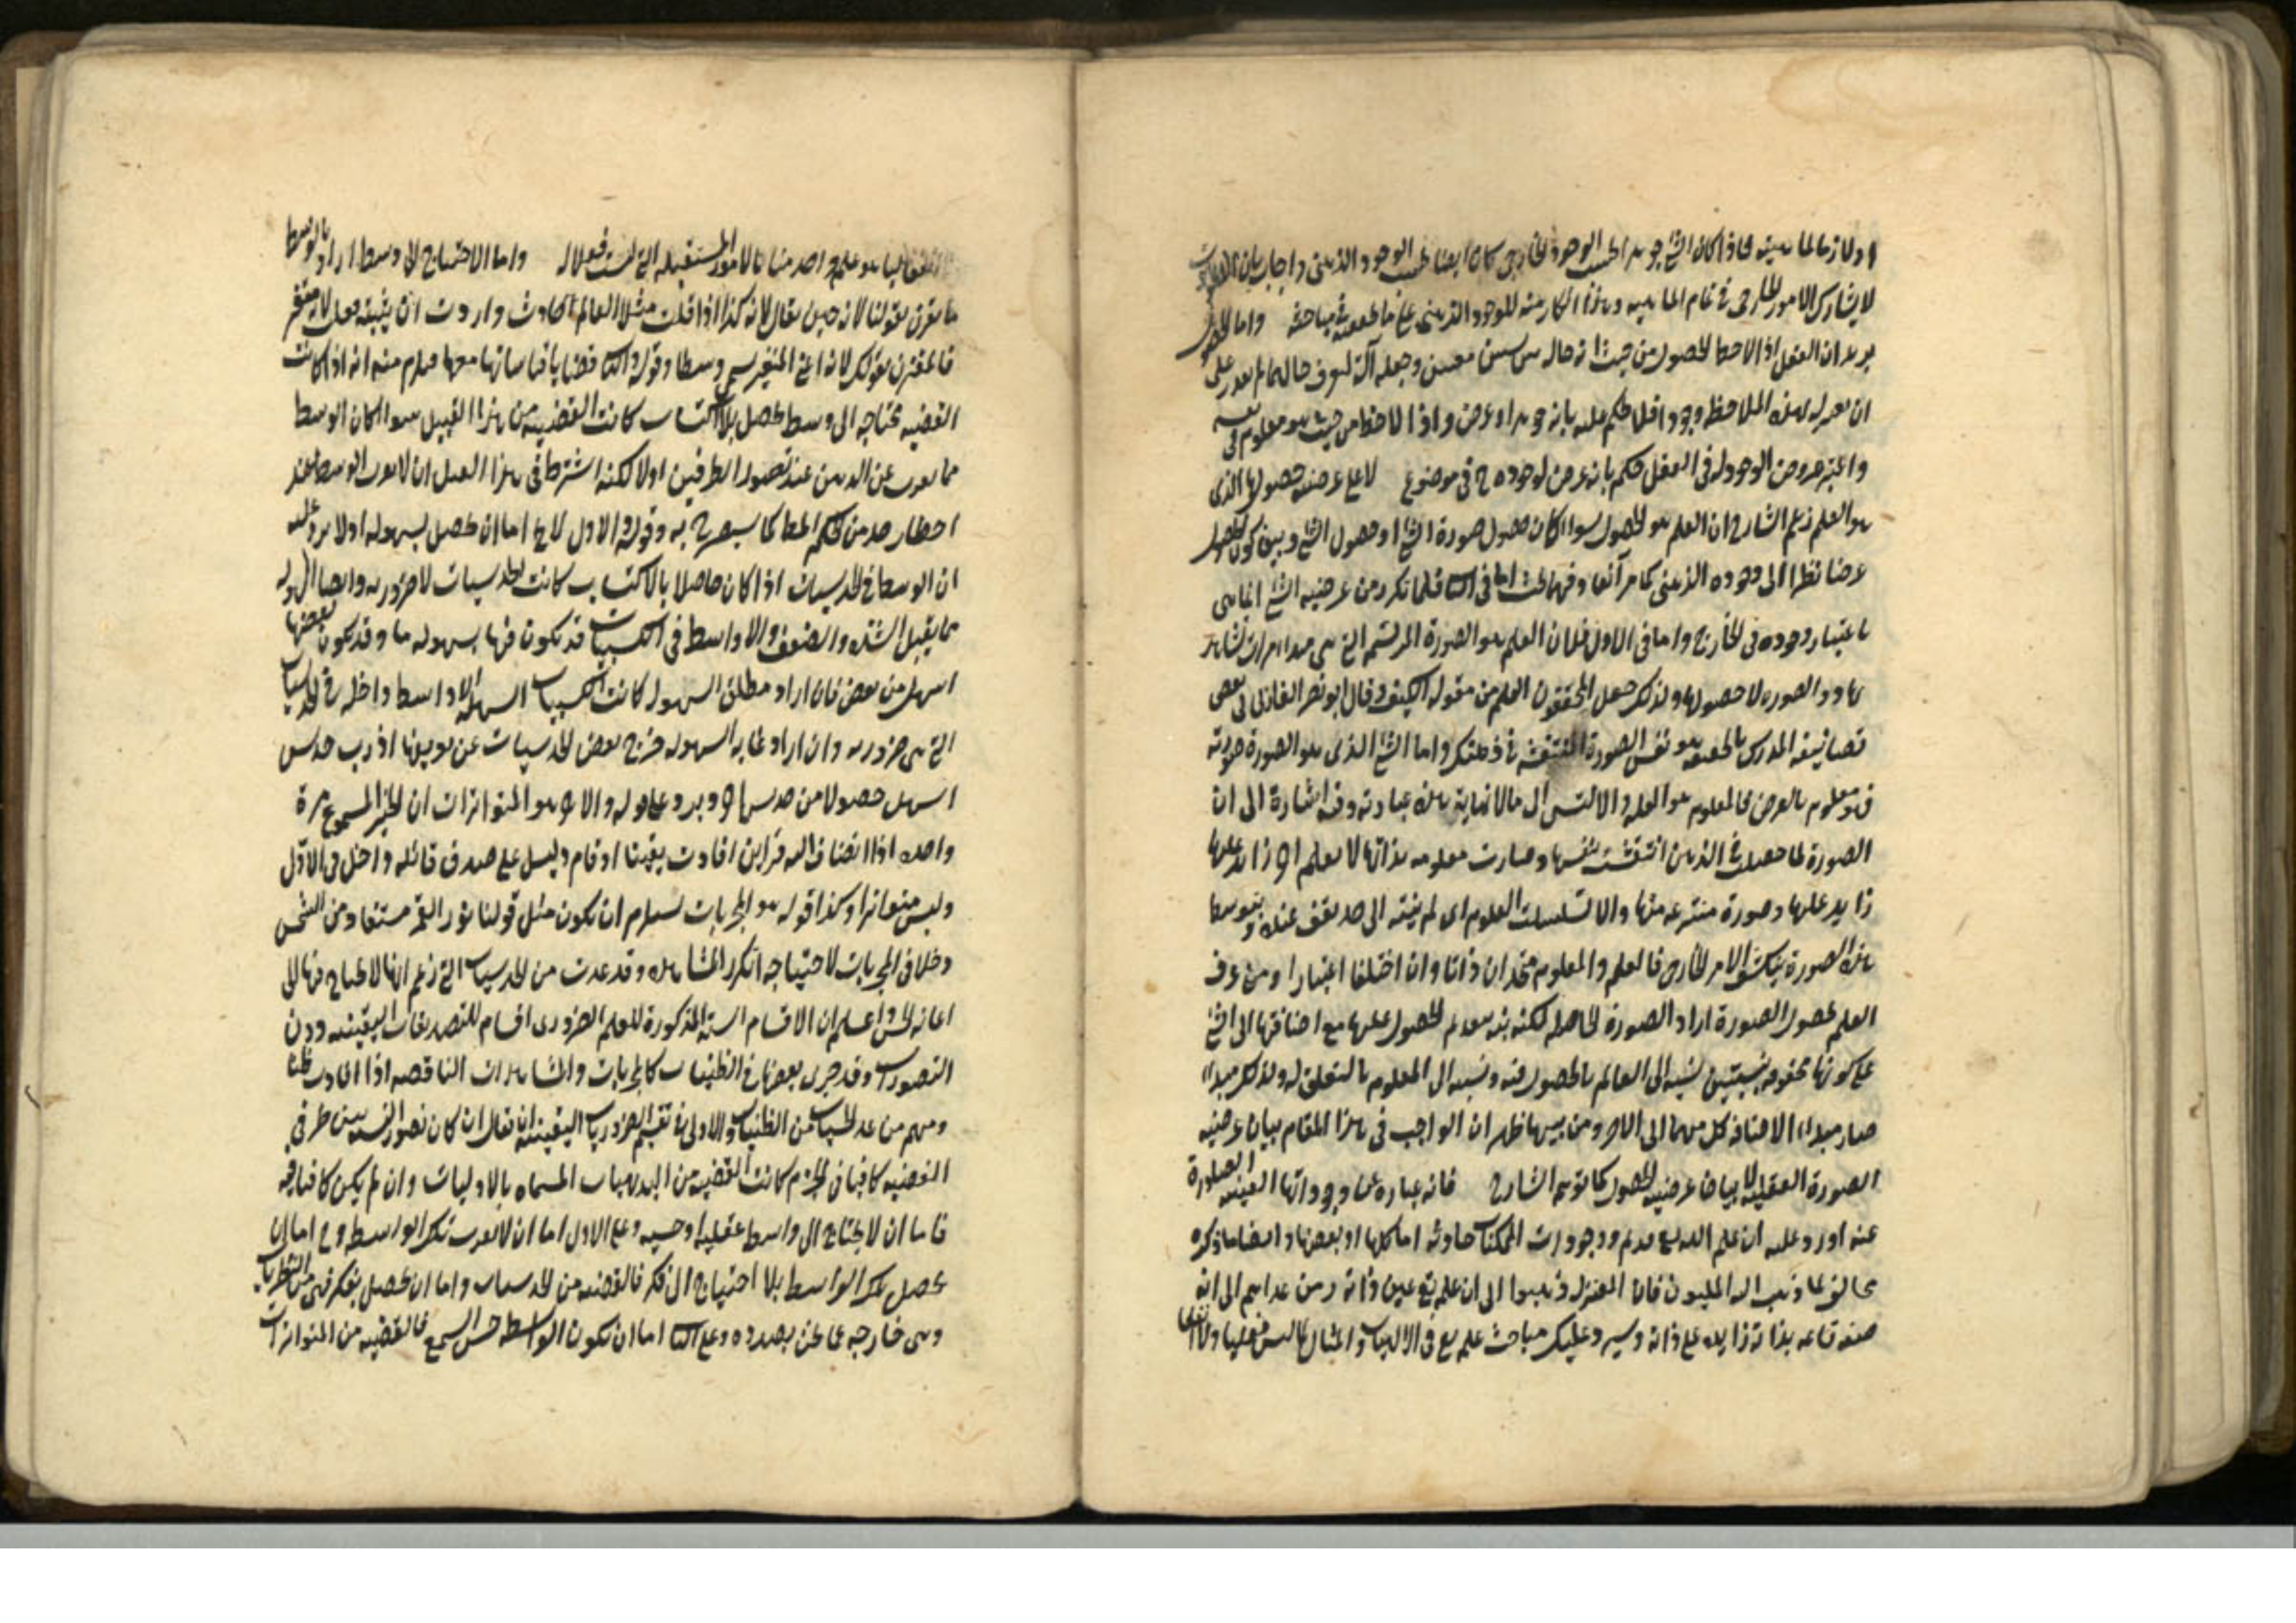 او لازما لماهيته فاذا كان الشئ جوهرا بحسب الوجود الخارجي كان ايضا بحسب الوجود الذهني واجاب بان
لا يشارك الامور الخارجي في تمام الماهيه وهذا انكار منه للوجود الذهني على ما في مباحثه واما
يريد ان العقل اذا لاحظ الحصول من حيث انه حاله بين شيئين معينين وجعله آلة لتعرف حالهما لم يقدر على
ان يعبر له بهذه الملاحظه وجودا فلا يحكم عليه بانه جوهر او عرض واذا لاحظه من حيث هو معلوم في نفسه
واعتبر عروض الوجود له في العقل حكم بانه عرض لوجوده ح في موضوع لا على عرضيه حصولها الذي
هو العلم زعم الشارح ان العلم هو الحصول سواء كان حصول صورة الشئ او حصول الشئ وبين كون الحصول
عرضا نظرا الى وجوده الذهني كما مر آنفا وفيه بحث اما في الثاني فلما تكرر من عرضيه الشئ انما هي
باعتبار وجوده في الخارج واما في الاول فلان العلم هو الصورة المرتسمه التي هي مبدا
الصوره لا حصولها ولذلك جعل المحققون العلم من مقوله الكيف وقال ابو نصر الفارابي في بعض
تصانيفه المدرك بالحقيقه هو نفس الصورة المنتقشه في ذهنك واما الشئ الذي هو الصورة صورته
فهو معلوم بالعرض فالمعلوم هو العلم والا لتسلسل الى ما لا نهاية هذه عبارته وفيه اشارة الى ان
الصورة لما حصلت في الذهن انتقشت بنفسها وصارت معلومه بذاتها لا بعلم اخر زايد عليها
زايد عليها وصورة منتزعه منها والا لتسلسلت العلوم اي لم ينته الى حد يقف عنده وبتوسط
هذه الصورة ينكشف الامر الخارجي فالعلم والمعلوم متحدان ذاتا وان اختلفا اعتبارا ومن عرف
العلم بحصول الصورة اراد الصورة الحاصله لكنه نبه بتقديم الحصول عليها مع اضافتها الى الشئ
على كونها محفوفه بنسبتين نسبه الى العالم بالحصول فيه ونسبه الى المعلوم بالتعلق له ولذلك
صار مبداء الاضافه كل منهما الى الاخر ومن هيهنا ظهر ان الواجب في هذا المقام بيان عرضيه
الصورة العقليه لا بيان عرضيه الحصول كما توهم الشارح فانه عباره عن وجوداتها العينيه الصادرة
عنه اورد عليه ان علم الله تع قديم ووجودات الممكنات حادثه اما كلها او بعضها وايضا ما ذكره
مخالف لما ذهب اليه المليون فان المعتزله ذهبوا الى ان علمه تع عين ذاته ومن عداهم الى انه
صفه قائمه بذاته زايده على ذاته وسيرد عليك مباحث علمه تع في الالهيات والمثال لما ليس فعليا ولا انفعاليا
انفعاليا هو علم واحد منا بالامور المستقبله التي ليست فعلا له واما الاحتياج الى وسط اراد بالوسط
ما يقترن بقولنا لانه حين يقال لانه كذا اذا قلت مثلا العالم حادث واردت ان يثبته بعلل لانه متغير
فالمقترن بقولك لانه اعني المتغير يسمى وسطا وقوله والثاني قضايا قياساتها معها يلزم منه انه اذا كانت
القضيه محتاجه الى وسط يحصل بلا اكتساب كانت القضيه من هذا القبيل سواء كان الوسط
مما يعزب عن الذهن عند تصور الطرفين او لا لكنه اشترط في هذا القبيل ان لا يعزب الوسط عند
اخطار حد من حكم المط كما سيصرح به وقوله والاول لا يخ اما ان يحصل بسهوله او لا يرد عليه
ان الوسط في الحدسيات اذا كان حاصلا بالاكتساب كانت الحدسيات لا ضروريه وايضا السهوله
مما يقبل الشده والضعف والاواسط في الكسبيات قد تكون فيها بسهوله ما وقد يكون بعضها
اسهل من بعض فان اراد مطلق السهوله كانت الكسبيات السهله الاواسط داخله في الحدسيات
التي هي ضروريه وان اراد غايه السهوله خرج بعض الحدسيات عن تعريفها اذ رب حدس
اسهل حصولا من حدس اخر ويرد على قوله والاخر هو المتواترات ان الخبر المسموع مرة
واحده اذا انضاف اليه قراين افادت يقينا او قام دليل على صدق قائله داخل في الاول
وليس متواترا وكذا قوله هو المجربات يستلزم ان يكون مثل قولنا نور القمر مستفاد من الشمس
داخلا في المجربات لاحتياجه الى تكرر المشاهده وقد عدت من الحدسيات التي زعم انها لا يحتاج فيها الى
اعانه الحس واعلم ان الاقسام السته المذكورة للعلم الضروري اقسام للتصديقات اليقينيه دون
التصورات وقد جرى بعضها في الظنيات كالمجربات والمشاهدات الناقصه اذا افادت ظنا
ومنهم من عد الحدسيات من الظنيات والاولى في تقسيم الضروريات اليقينيه ان يقال ان كان تصور النسبه بين طرفي
القضيه كافيا في الجزم كانت القضيه من البديهيات المسماه بالاوليات وان لم يكن كافيا فيه
فاما ان لا يحتاج الى واسطه عقليه او حسيه وعلى الاول اما ان لا يعزب تلك الواسطه وح اما ان
يحصل تلك الواسطه بلا احتياج الى فكر فالقضيه من الحدسيات واما ان يحصل بفكر فهي من النظريات
وهي خارجه عما نحن بصدده وعلى الثاني اما ان تكون الواسطه حس السمع فالقضيه من المتواترات